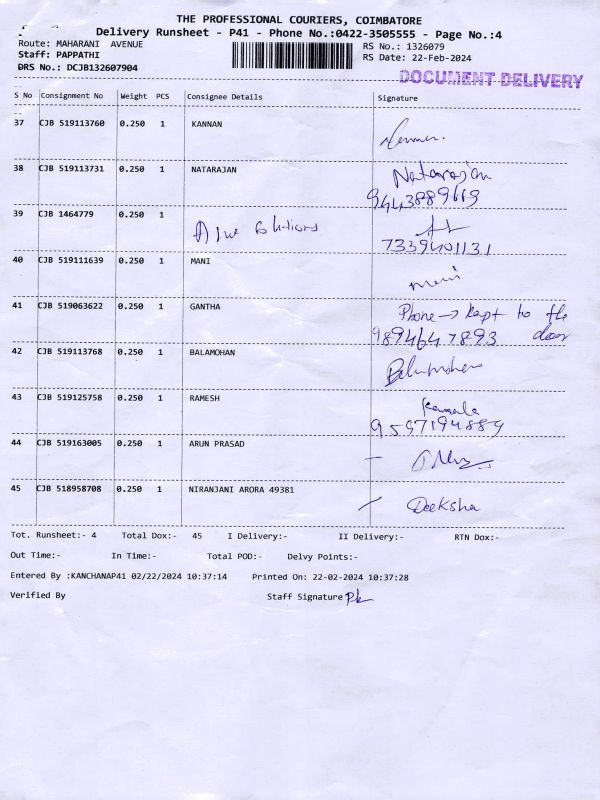 THE PROFESSIONAL COURIERS, COIMBATORE
Delivery Runsheet - P41 - Phone No.:0422-3505555 - Page No.:4
Route: MAHARANI AVENUE
RS No.: 1326079
Staff: PAPPATHI
RS Date: 22-Feb-2024
DRS No.: DCJB132607904
DOCUMENT DELIVERY
S No Consignment No Weight PCS Consignee Details Signature
37 CJB 519113760 0.250 1 KANNAN
38 CJB 519113731 0.250 1 NATARAJAN Natarajan
9443889669
39 CJB 1464779 0.250 1
7339401131
40 CJB 519111639 0.250 1 MANI Mani
41 CJB 519063622 0.250 1 GANTHA Phone → kept to the
9894647893 door
42 CJB 519113768 0.250 1 BALAMOHAN Balamohan
43 CJB 519125758 0.250 1 RAMESH Kamala
9597194889
44 CJB 519163005 0.250 1 ARUN PRASAD
45 CJB 518958708 0.250 1 NIRANJANI ARORA 49381 Deeksha
Tot. Runsheet:- 4 Total Dox:- 45 I Delivery:- II Delivery:- RTN Dox:-
Out Time:- In Time:- Total POD:- Delvy Points:-
Entered By :KANCHANAP41 02/22/2024 10:37:14 Printed On: 22-02-2024 10:37:28
Verified By Staff Signature Pk